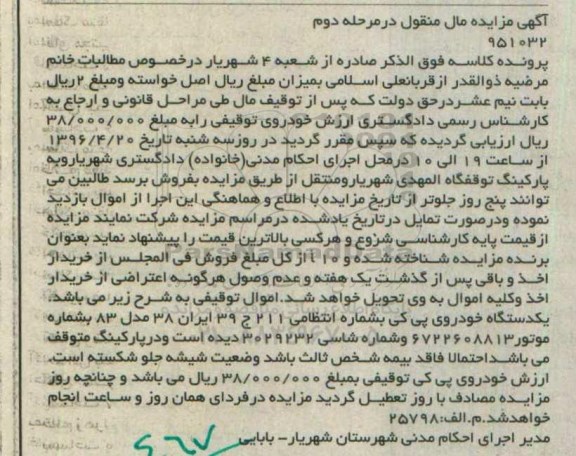 آگهی مزایده مال منقول درمرحله دوم
۹۵۱۰۳۲
پرونده کلاسه فوق الذکر صادره از شعبه ۴ شهریار درخصوص مطالبات خانم
مرضیه ذوالقدر ازقربانعلی اسلامی بمیزان مبلغ ریال اصل خواسته ومبلغ ۲ ریال
بابت نیم عشردرحق دولت که پس از توقیف مال طی مراحل قانونی و ارجاع به
کارشناس رسمی دادگستری ارزش خودروی توقیفی رابه مبلغ ۳۸/۰۰۰/۰۰۰
ریال ارزیابی گردیده که سپس مقرر گردید در روزسه شنبه تاریخ ۱۳۹۶/۴/۲۰
از ساعت ۱۹ الی ۱۰ درمحل اجرای احکام مدنی(خانواده) دادگستری شهریاروبه
پارکینگ توقفگاه المهدی شهریارومنتقل از طریق مزایده بفروش برسد طالبین می
توانند پنج روز جلوتر از تاریخ مزایده با اطلاع و هماهنگی این اجرا از اموال بازدید
نموده ودرصورت تمایل درتاریخ یادشده درمراسم مزایده شرکت نمایند مزایده
ازقیمت پایه کارشناسی شروع و هرکسی بالاترین قیمت را پیشنهاد نماید بعنوان
برنده مزایده شناخته شده و ۱۰٪ از کل مبلغ فروش فی المجلس از خریدار
اخذ و باقی پس از گذشت یک هفته و عدم وصول هرگونه اعتراضی از خریدار
اخذ وکلیه اموال به وی تحویل خواهد شد. اموال توقیفی به شرح زیر می باشد.
یکدستگاه خودروی پی کی بشماره انتظامی ۲۱۱ ج ۳۹ ایران ۳۸ مدل ۸۳ بشماره
موتور ۶۷۲۲۶۰۸۸۱۳ وشماره شاسی ۳۰۲۹۲۳۲ دیده است ودرپارکینگ متوقف
می باشداحتمالا فاقد بیمه شخص ثالث باشد وضعیت شیشه جلو شکسته است.
ارزش خودروی پی کی توقیفی بمبلغ ۳۸/۰۰۰/۰۰۰ ریال می باشد و چنانچه روز
مزایده مصادف با روز تعطیل گردید مزایده درفردای همان روز و ساعت انجام
خواهدشد.م.الف:۲۵۷۹۸
مدیر اجرای احکام مدنی شهرستان شهریار- بابایی